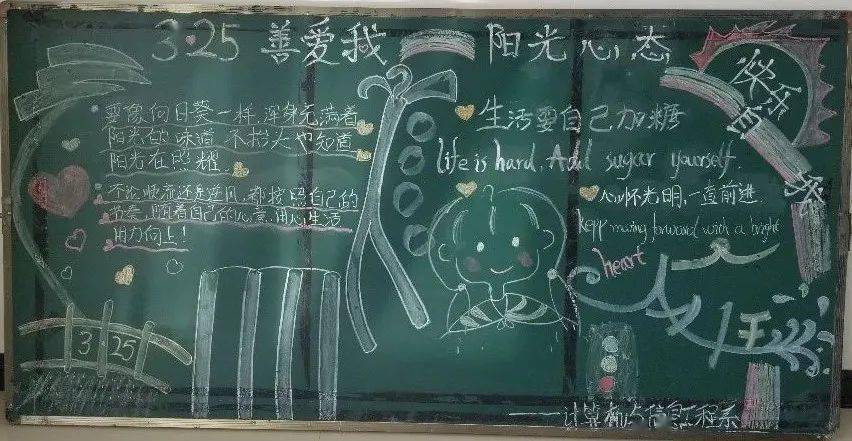 3·25 善爱我 阳光心态
要像向日葵一样，浑身充满着
阳光的味道 不抬头也知道
阳光在照耀。
不论顺流还是逆风，都按照自己的
节奏，随着自己的心意，用心生活
用力向上！
3·25
生活要自己加糖
life is hard, Add sugar yourself.
心怀光明，一直前进
kepp moving forward with a bright
heart
快乐自我
——计算机与信息工程系